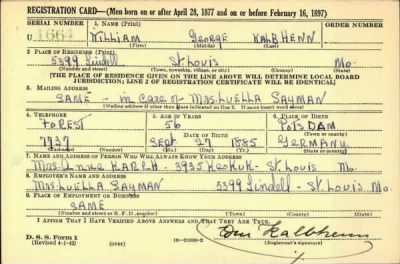 REGISTRATION CARD—(Men born on or after April 28, 1877 and on or before February 16, 1897)
SERIAL NUMBER 1. NAME (Print)
U 1664 William George KALBHENN
(First) (Middle) (Last)
2. PLACE OF RESIDENCE (Print)
5399 Lindell St Louis Mo.
(Number and street) (Town, township, village, or city) (County) (State)
[THE PLACE OF RESIDENCE GIVEN ON THE LINE ABOVE WILL DETERMINE LOCAL BOARD
JURISDICTION; LINE 2 OF REGISTRATION CERTIFICATE WILL BE IDENTICAL]
3. MAILING ADDRESS
SAME - in care of Mrs Luella Sayman
[Mailing address if other than place indicated on line 2. If same insert word same]
4. TELEPHONE 5. AGE IN YEARS 6. PLACE OF BIRTH
Forest 56 PotsDAM
DATE OF BIRTH (Town or county)
7737 Sept 27 1885 Germany
(Exchange) (Number) (Mo.) (Day) (Yr.) (State or country)
7. NAME AND ADDRESS OF PERSON WHO WILL ALWAYS KNOW YOUR ADDRESS
Mrs. 3935 Keokuk - St. Louis Mo
8. EMPLOYER'S NAME AND ADDRESS
Mrs Luella Sayman 5399 Lindell - St. Louis Mo.
9. PLACE OF EMPLOYMENT OR BUSINESS
SAME
(Number and street or R. F. D. number) (Town) (County) (State)
I AFFIRM THAT I HAVE VERIFIED ABOVE ANSWERS AND THAT THEY ARE TRUE.
D. S. S. Form 1
(Revised 4-1-42) (over) Kalbhenn
(Registrant's signature)